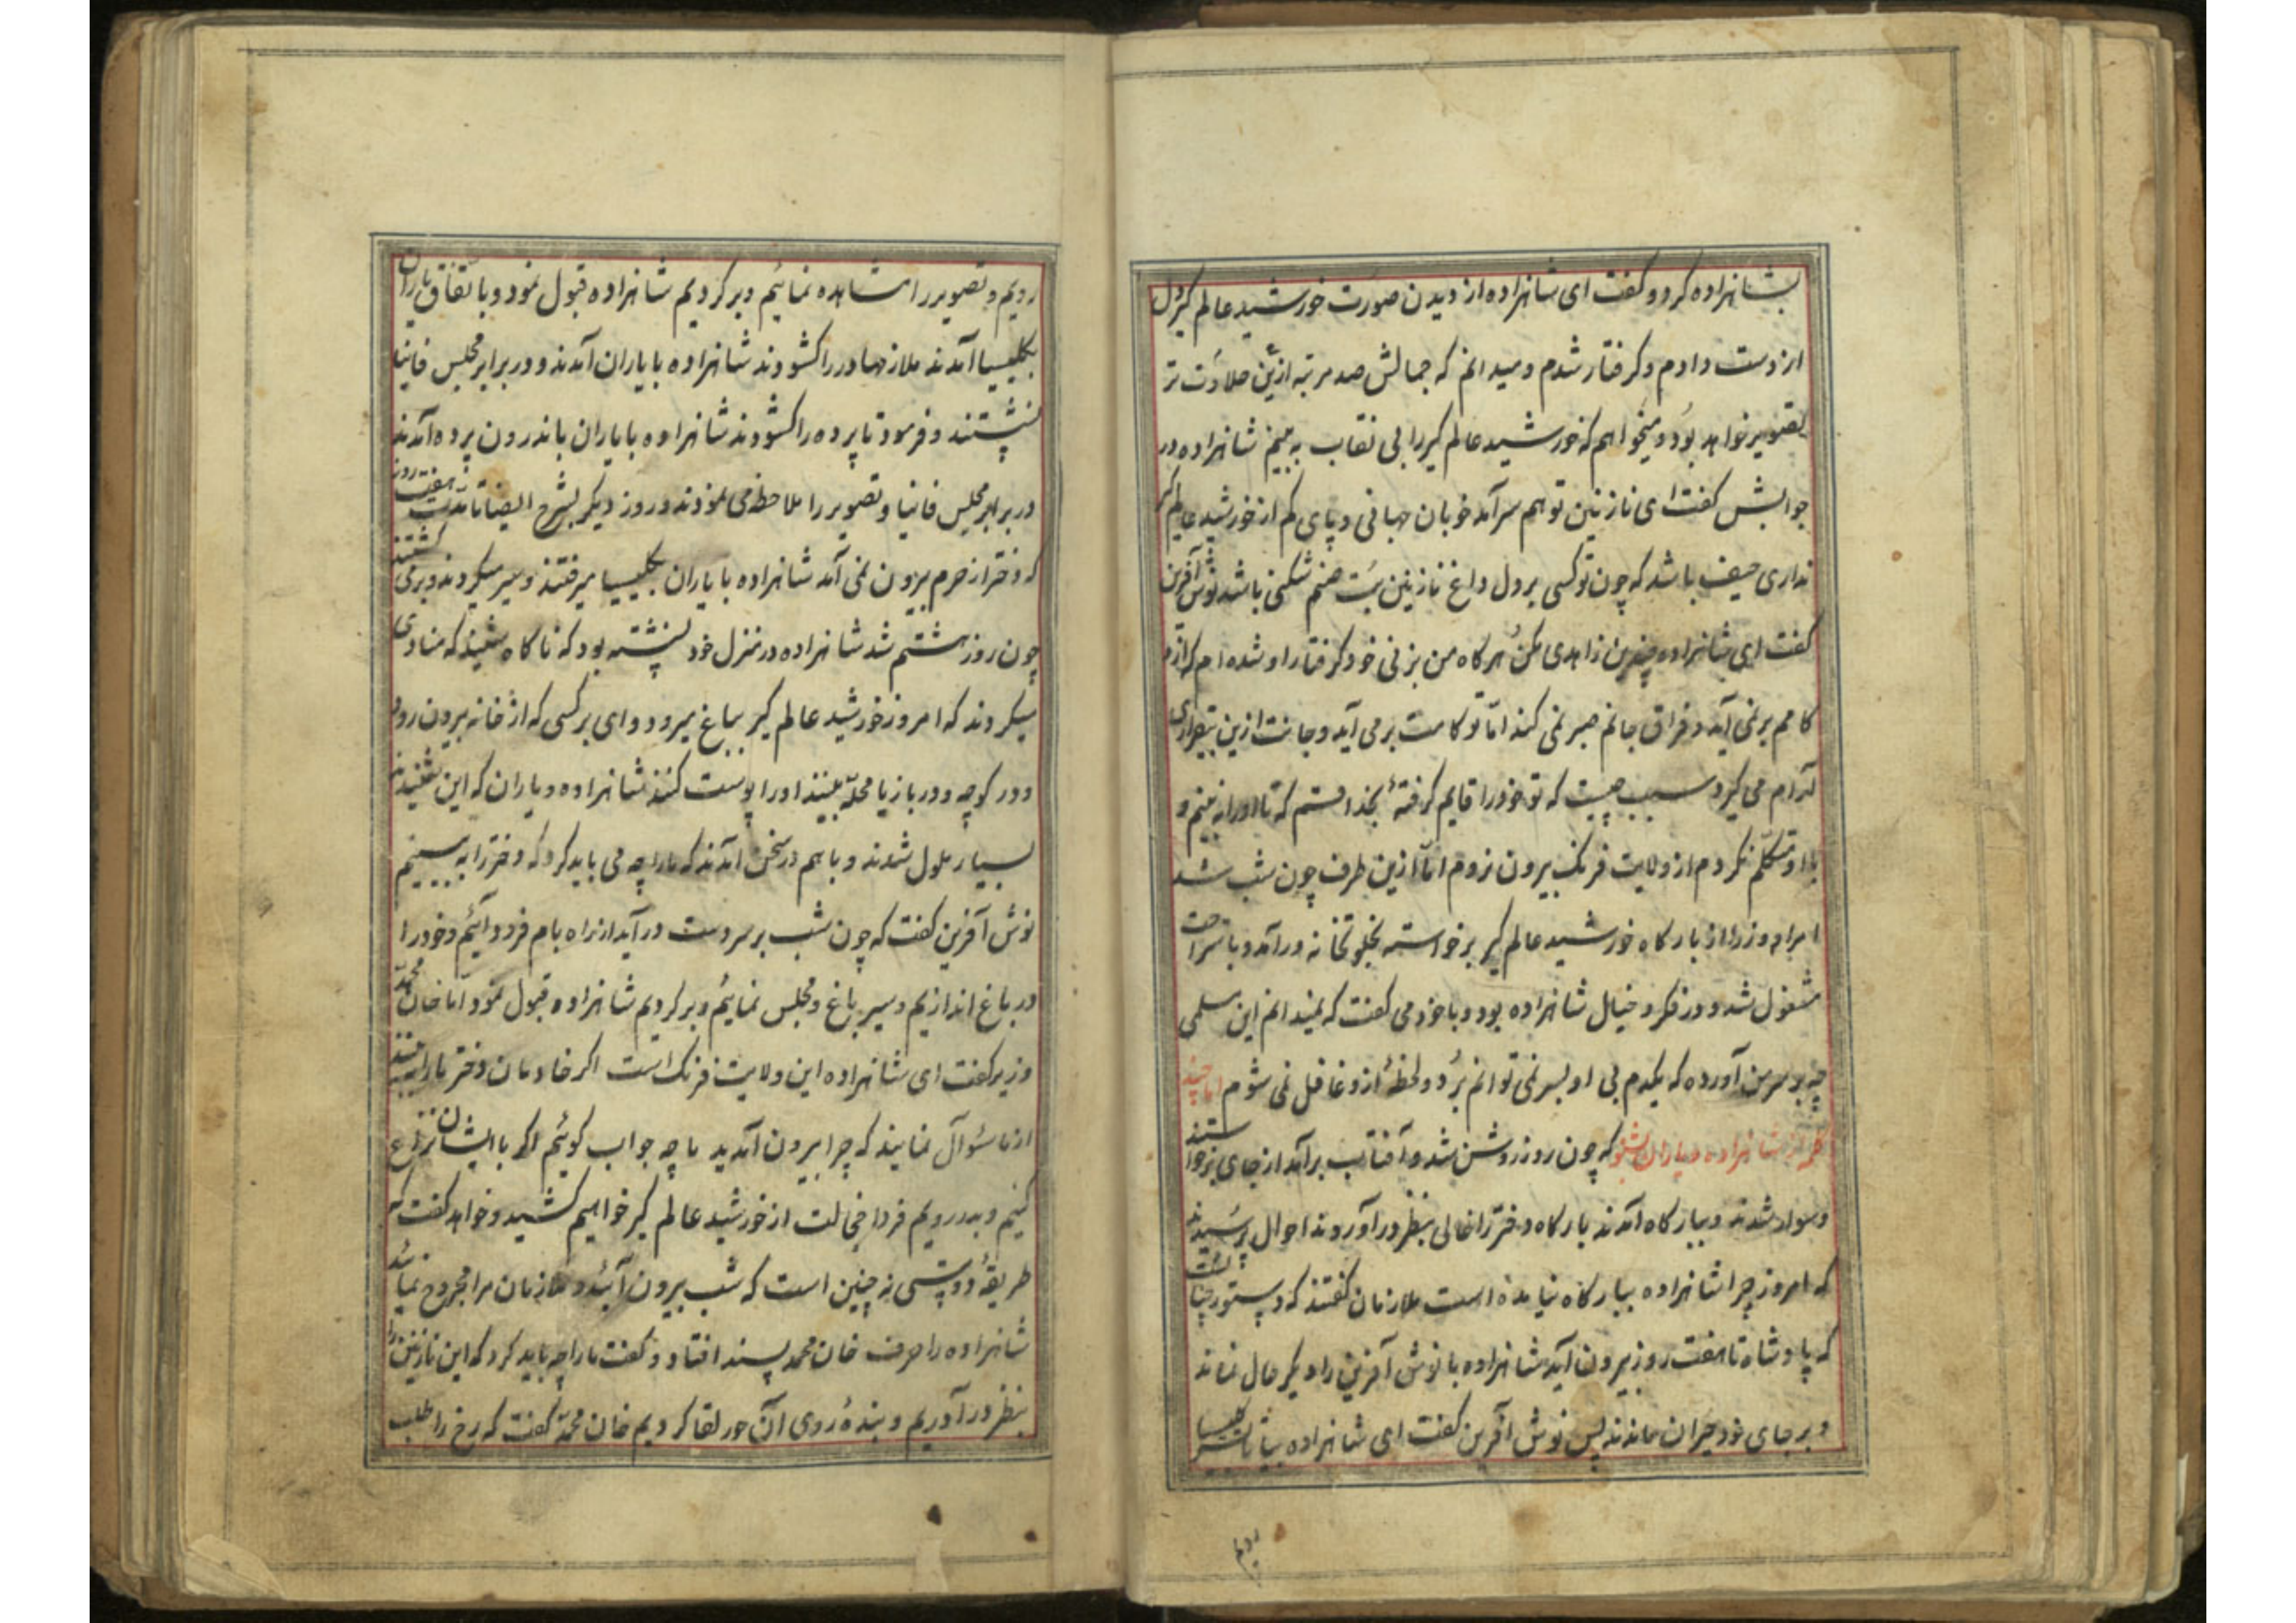 بشاهزاده کرد و کفت ای شاهزاده از دیدن صورت خورشید عالم کیر دل
از دست دادم و کرفتار شدم و میدانم که جمالش صد مرتبه ازین حلاوت تر
تصویر خواهد بود و میخواهم که خورشید عالم کیر را بی نقاب به بینم شاهزاده در
جوابش کفت ای نازنین تو هم سرآمد خوبان جهانی و پای کم از خورشید عالم کیر
نداری حیف باشد که چون تو کسی بر دل داغ نازنین بت صنم شکنی باشد نوش آفرین
کفت ای شاهزاده چندین زاهدی مکن هرکاه من بزنی خود کرفتار او شده ام که از
کامم بر نمی آید و فراق جانم صبر نمی کند اما تو کامت بر می آید و جانت ازین بیقراری
آرام می کیرد سبب چیست که تو خود را قایم کرفتهٔ بخدا قسم که تا او را نه بینم و
با او تکلم نکردم از ولایت فرنک بیرون نروم اما ازین طرف چون شب شد
امرا و وزرا از بارکاه خورشید عالم کیر برخواسته بخلوتخانه درآمد و باستراحت
مشغول شد و در فکر و خیال شاهزاده بود و با خود می کفت که نمیدانم این سلمی
چه بر سر من آورده که یکدم بی او بسر نمی توانم برد و لحظهٔ ازو غافل نمی شوم اما چند
کلمه از شاهزاده و یاران بشنو که چون روز روشن شد و آفتاب برآمد از جای برخواستند
و سوار شدند و ببارکاه آمدند بارکاه دختر را خالی بنظر درآوردند احوال پرسیدند
که امروز چرا شاهزاده ببارکاه نیامده است ملازمان کفتند که دستور چنانست
که پادشاه تا هفت روز بیرون آید شاهزاده با نوش آفرین را دیکر حال نماند
و بر جای خود حیران ماندند پس نوش آفرین کفت ای شاهزاده بیا تا بسیر کلیسا
رویم
رویم و تصویر را مشاهده نمائیم و برکردیم شاهزاده قبول نمود و باتفاق یاران
بکلیسیا آمدند ملازمها در را کشودند شاهزاده با یاران آمدند و در برابر مجلس فانیا
نشستند و فرمود تا پرده را کشودند شاهزاده با یاران باندرون پرده آمدند
در برابر مجلس فانیا و تصویر را ملاحظه می نمودند و روز دیکر بشرح ایضا تا مدت هفت روز
که دختر از حرم بیرون نمی آمد شاهزاده با یاران بکلیسیا میرفتند و سیر میکردند و بر می کشتند
چون روز هشتم شد شاهزاده در منزل خود نشسته بود که ناکاه شنید که منادی
میکردند که امروز خورشید عالم کیر بباغ میرود وای بر کسی که از خانه بیرون رود
و در کوچه و در بازیا محله بینند او را پوست کنند شاهزاده و یاران که این شنیدند
بسیار ملول شدند و با هم در سخن آمدند که ما را چه می باید کرد که دختر را به بینیم
نوش آفرین کفت که چون شب بر سر دست درآید از راه بام فرود آئیم و خود را
در باغ اندازیم و سیر باغ و مجلس نمائیم و برکردیم شاهزاده قبول نمود اما خان محمد
وزیر کفت ای شاهزاده این ولایت فرنک است اکر خادمان دختر ما را به بینند
از ما سؤال نمایند که چرا بیرون آمدید ما چه جواب کوئیم اکر با ایشان نزاع
کنیم و بدر رویم فردا خجالت از خورشید عالم کیر خواهیم کشید و خواهد کفت که
طریقهٔ دوستی نه چنین است که شب بیرون آئید و ملازمان مرا مجروح نمائید
شاهزاده را حرف خان محمد پسند افتاد و کفت ما را چه باید کرد که این نازنین را
بنظر درآوریم و بندهٔ روی آن حور لقا کردیم خان محمد کفت که رخ را طلب